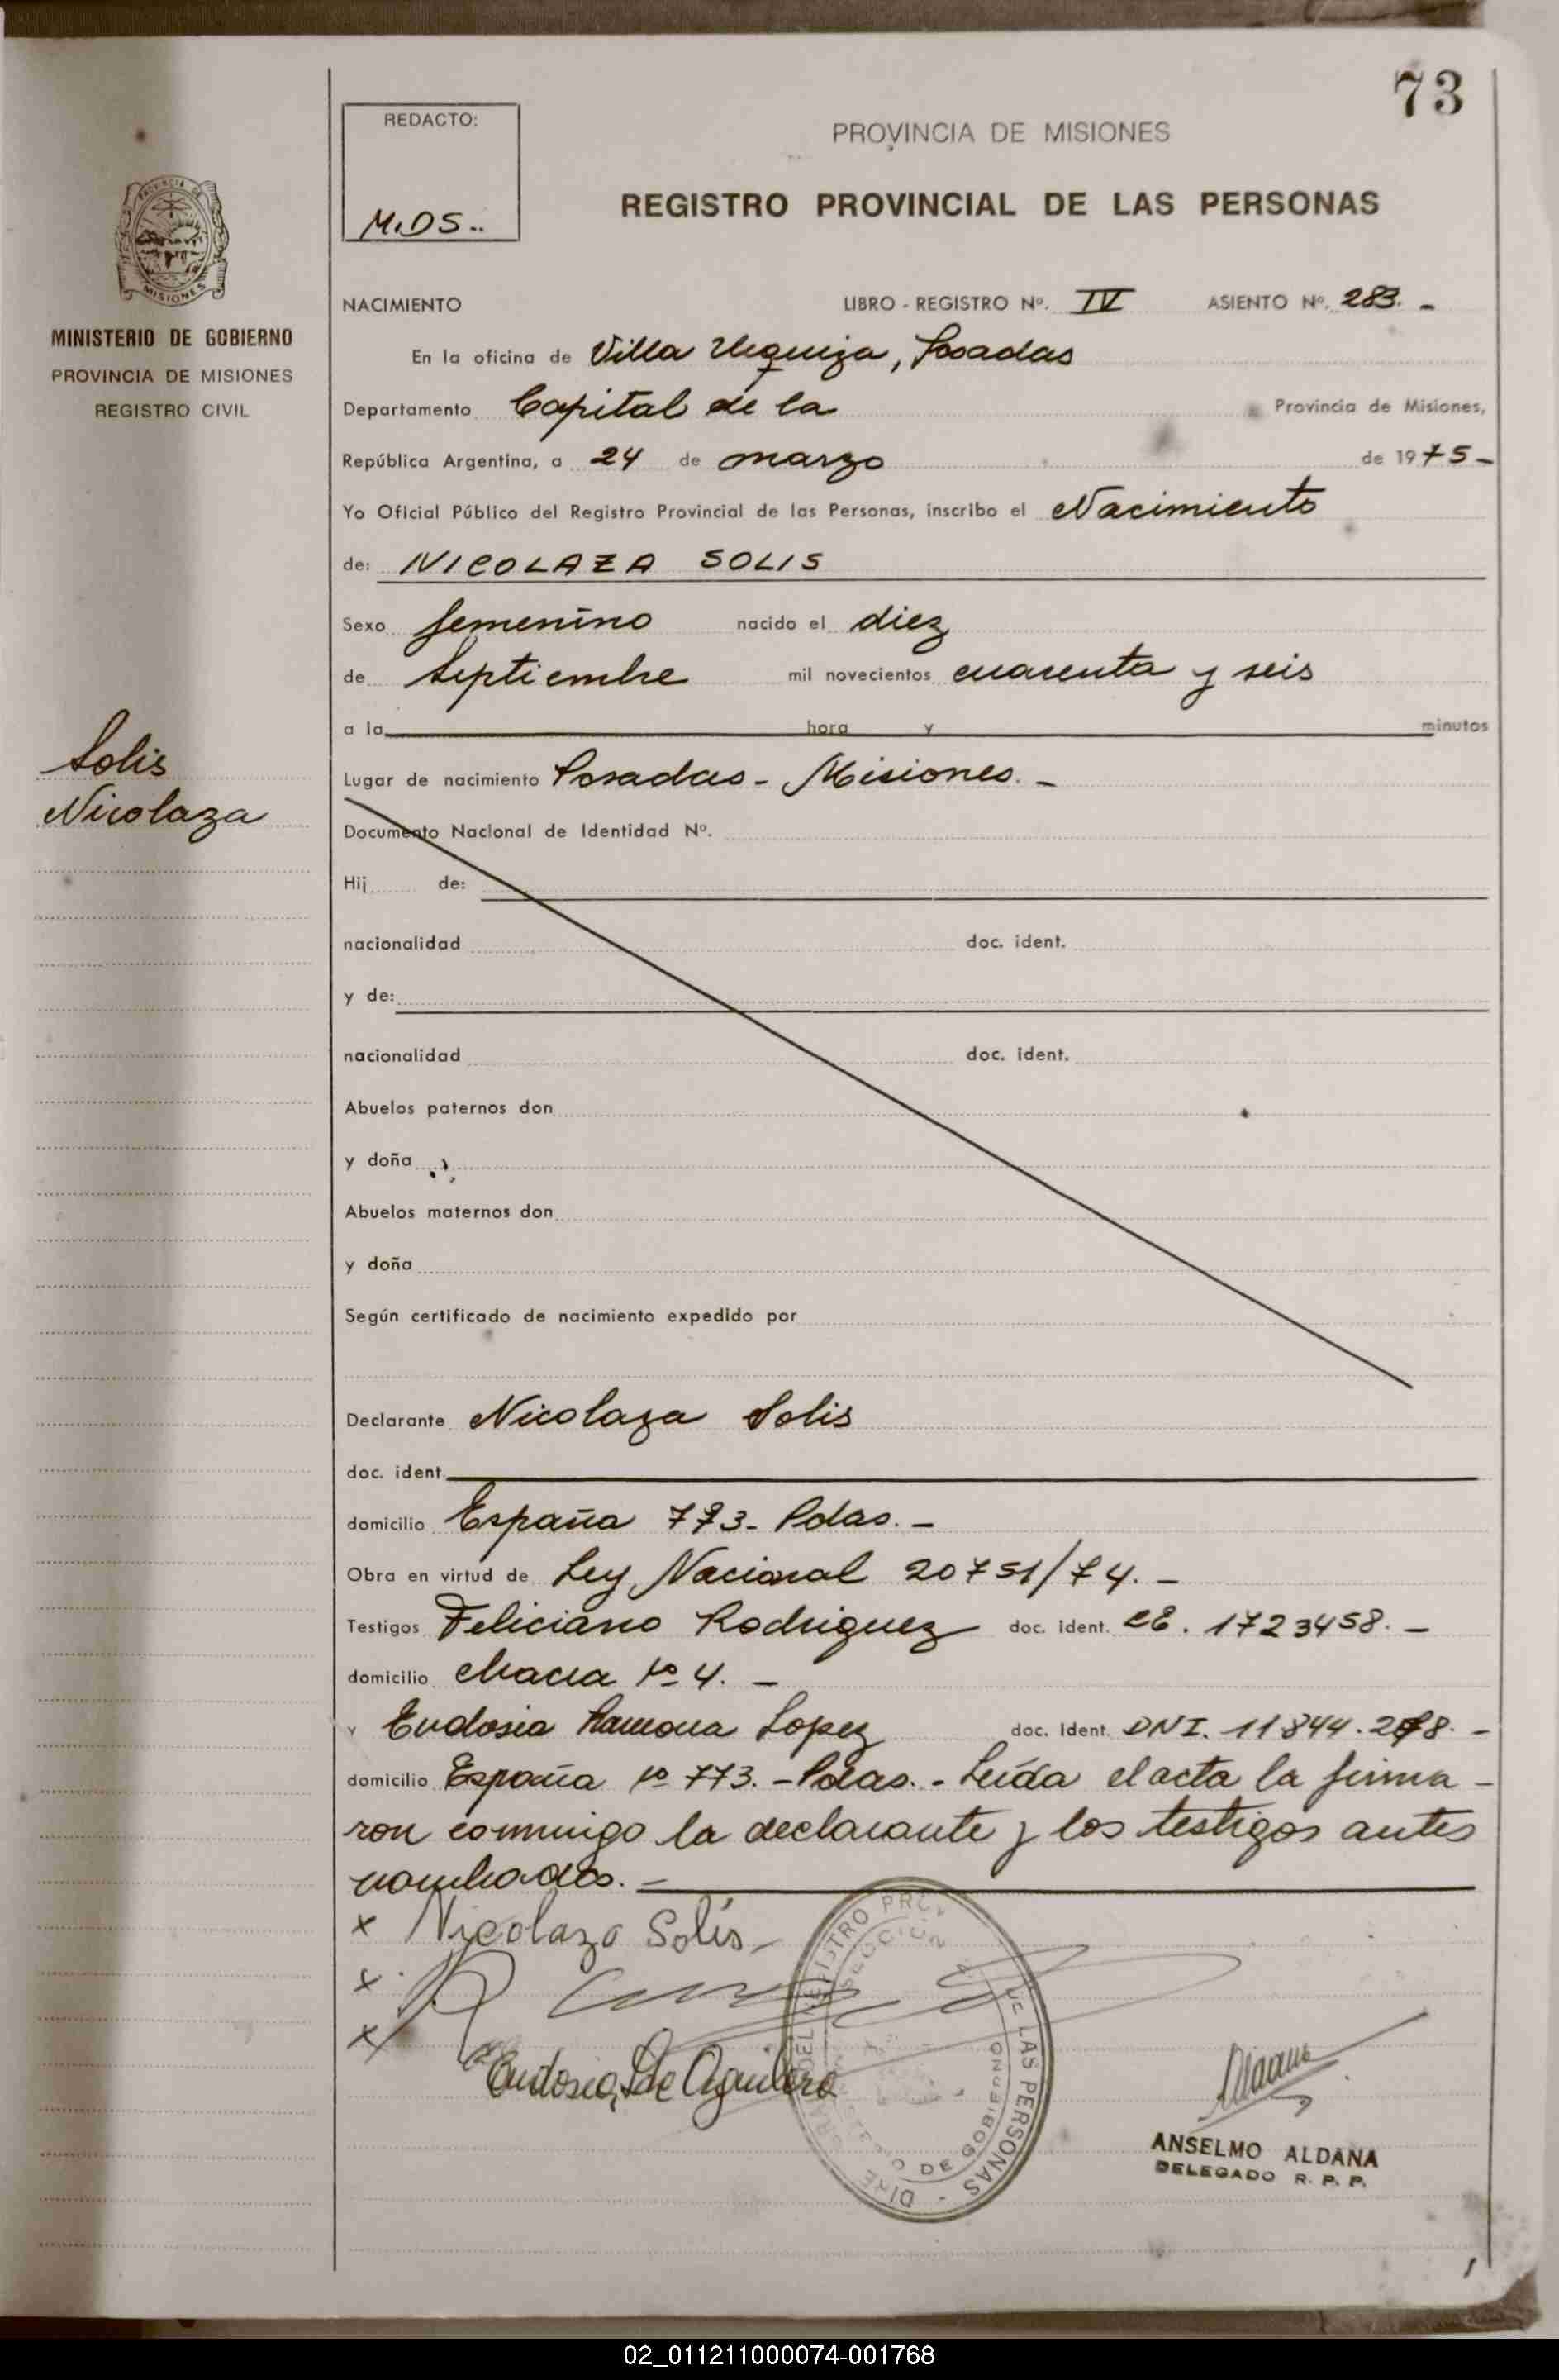 73
REDACTO:
M.DS..
PROVINCIA DE MISIONES
REGISTRO PROVINCIAL DE LAS PERSONAS
MISIONES
MINISTERIO DE GOBIERNO
PROVINCIA DE MISIONES
REGISTRO CIVIL
NACIMIENTO LIBRO - REGISTRO Nº. IV ASIENTO Nº. 283. -
En la oficina de Villa Urquiza, Posadas
Departamento Capital de la Provincia de Misiones,
República Argentina, a 24 de marzo de 1975-
Yo Oficial Público del Registro Provincial de las Personas, inscribo el Nacimiento
de: NICOLAZA SOLIS
Sexo femenino nacido el diez
de Septiembre mil novecientos cuarenta y seis
a la hora y minutos
Solis
Nicolaza
Lugar de nacimiento Posadas - Misiones. -
Documento Nacional de Identidad Nº.
Hij de:
nacionalidad doc. ident.
y de:
nacionalidad doc. ident.
Abuelos paternos don
y doña
Abuelos maternos don
y doña
Según certificado de nacimiento expedido por
Declarante Nicolaza Solis
doc. ident.
domicilio España 773- Pdas. -
Obra en virtud de Ley Nacional 20751/74. -
Testigos Feliciano Rodriguez doc. ident. 1723458. -
domicilio Chacra Nº 4. -
y Eudosia Ramona Lopez doc. Ident. DNI. 11844.
domicilio España Nº 773. - Pdas. - Leída el acta la firma -
ron conmigo la declarante y los testigos antes
nombrados. -
x Nicolaza Solis
x
x
Eudosia L de Aguilera
DEL REGISTRO PROV DE LAS PERSONAS - DIRE
SECCION
DE GOBIERNO
ANSELMO ALDANA
DELEGADO R. P. P.
02_011211000074-001768